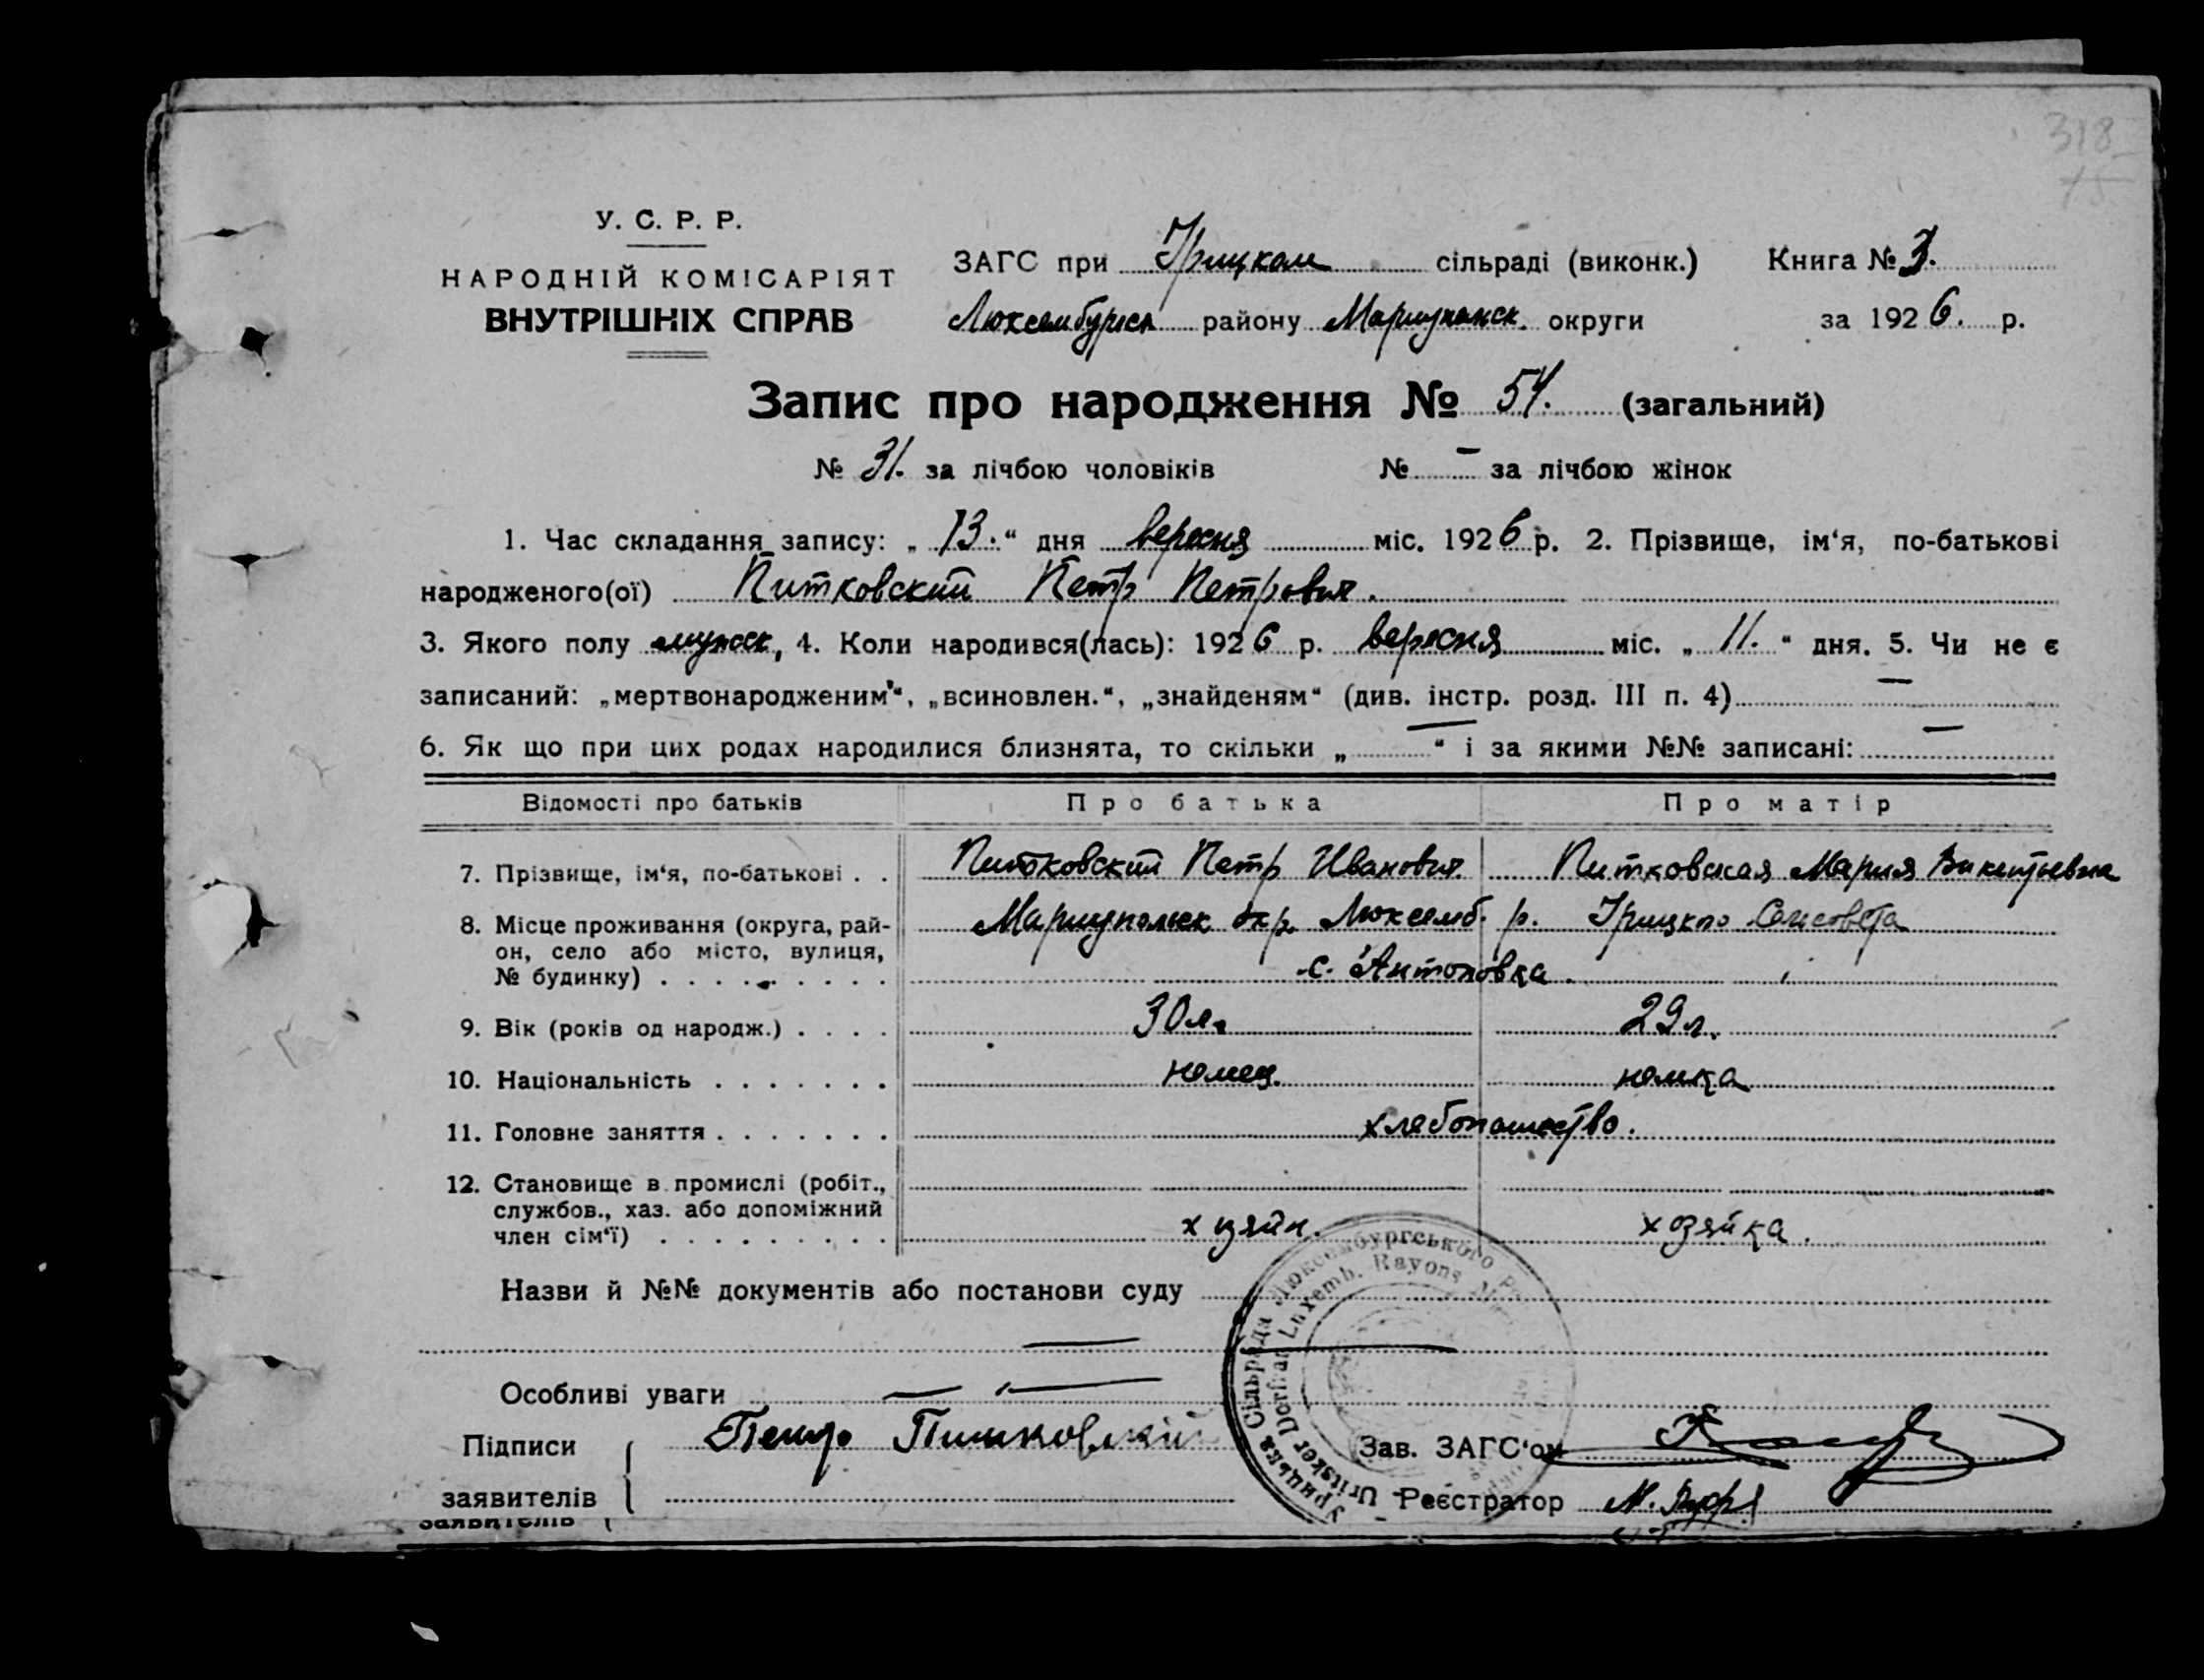 318
15
У. С. Р. Р.
НАРОДНІЙ КОМІСАРІЯТ
ВНУТРІШНІХ СПРАВ
ЗАГС при Урицком сільраді (виконк.) Книга № 3.
Люксембургск району Мариупольск. округи за 1926. р.
Запис про народження № 54. (загальний)
№ 31. за лічбою чоловіків № — за лічбою жінок
1. Час складання запису: „13.“ дня вересня міс. 1926 р. 2. Прізвище, ім‘я, по-батькові
народженого(ої) Питковский Петр Петрович.
3. Якого полу мужск, 4. Коли народився(лась): 1926 р. вересня міс. „11.“ дня. 5. Чи не є
записаний: „мертвонародженим“, „всиновлен.“, „знайденям“ (див. інстр. розд. III п. 4) —
6. Як що при цих родах народилися близнята, то скільки „—“ і за якими №№ записані: —
Відомості про батьків Про батька Про матір
7. Прізвище, ім‘я, по-батькові . . Питковский Петр Иванович. Питковская Мария Викентьевна
8. Місце проживання (округа, рай- Мариупольск окр. Люксемб. р. Урицкого Сельсовета
он, село або місто, вулиця,
№ будинку) . . . . . . . . . с. Антоновка.
9. Вік (років од народж.) . . . . 30л. 29л.
10. Національність . . . . . . . немец. немка
11. Головне заняття . . . . . . . хлебопашество.
12. Становище в промислі (робіт.,
службов., хаз. або допоміжний
член сім‘ї) . . . . . . . . . хозяйн. хозяйка.
Назви й №№ документів або постанови суду
—
Особливі уваги — —
Урицька Сільрада Люксембургського
Uritsker Dorfrat Luxemb. Rayons
Підписи Петр Питковский Зав. ЗАГС‘ом
заявителів Реєстратор М.
заявителів